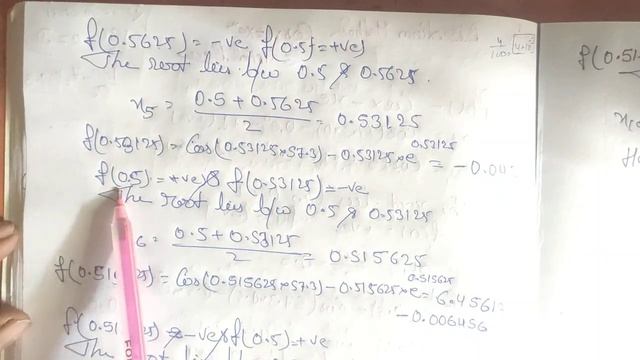 f(0.5625) = -ve f(0.5) = +ve)
The root lies b/w 0.5 & 0.5625.
x5 = 0.5 + 0.5625 / 2 = 0.53125
f(0.53125) = Cos(0.53125×57.3) - 0.53125×e^0.53125 = -0.04
f(0.5) = +ve & f(0.53125) = -ve
The root lies b/w 0.5 & 0.53125
6 = 0.5 + 0.53125 / 2 = 0.515625
f(0.51 5) = Cos(0.515625×57.3) - 0.515625×e^0.515625 = 6.4561
-0.006456
f(0.51 ) = -ve & f(0.5) = +ve
The root lies b/w 0.5
f(0.51